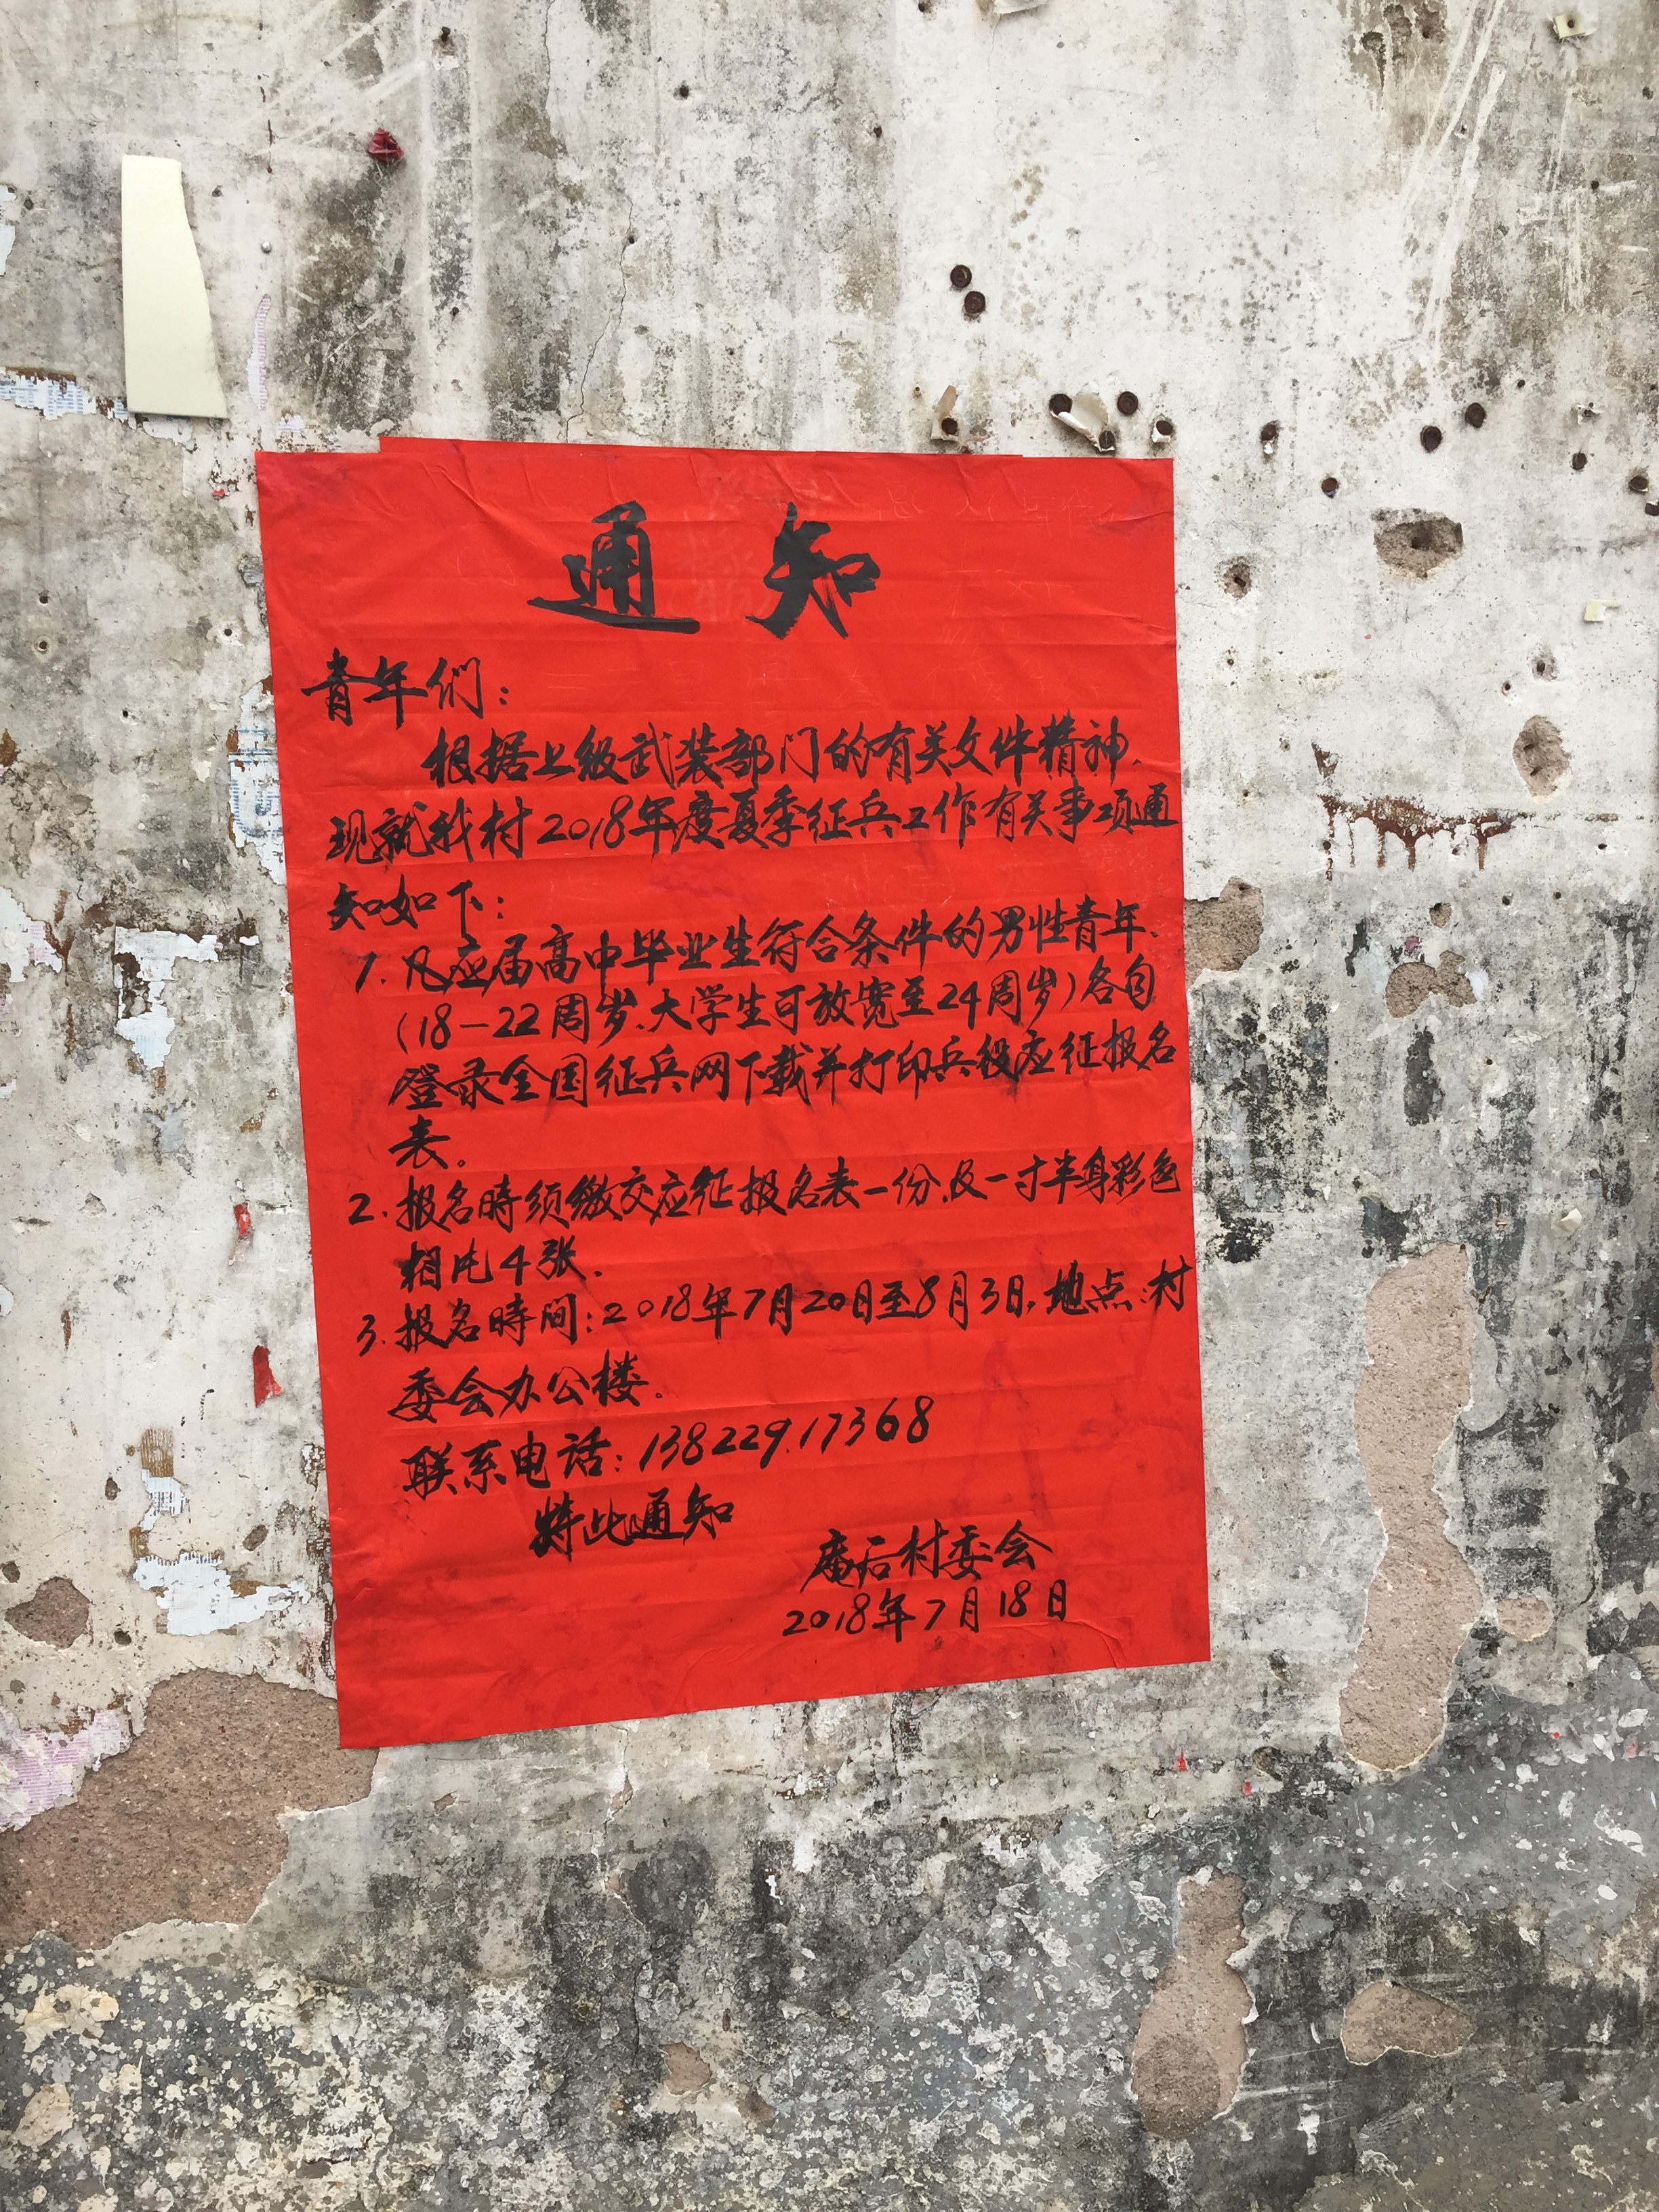 通知
青年们：
根据上级武装部门的有关文件精神.
现就我村2018年度夏季征兵工作有关事项通
知如下：
1.凡应届高中毕业生符合条件的男性青年.
(18-22周岁、大学生可放宽至24周岁)各自
登录全国征兵网下载并打印兵役应征报名
表。
2.报名時须缴交应征报名表一份.及一寸半身彩色
相片4张.
3.报名時间:2018年7月20日至8月3日.地点:村
委会办公楼.
联系电话:138229.17368
特此通知
庵后村委会
2018年7月18日